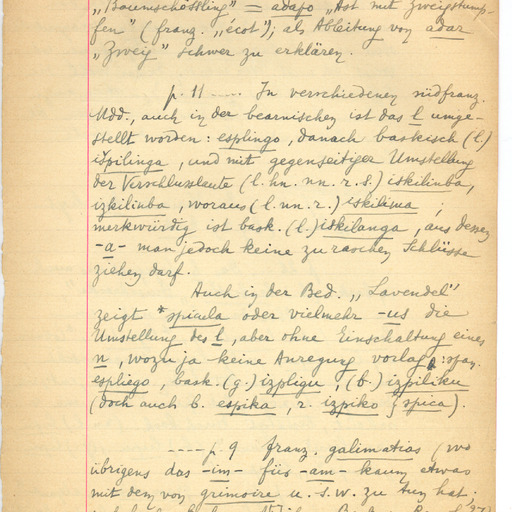 „Baumschössling" = adapo „Ast mit Zweigstump-
fen" (franz. „écot"); als Ableitung von adar
„Zweig" schwer zu erklären.
p. 11 ---- In verschiedenen südfranz.
Mdd., auch in der bearnischen ist das l umge-
stellt worden: esplingo, danach baskisch (l.)
išpilinga, und mit gegenseitiger Umstellung
der Verschlusslaute (l. hn. nn. r. s.) iskilinba,
izkilinba, woraus (l. nn. r.) iskilima;
merkwürdig ist bask. (l.) iskilanga, aus dessen
-a- man jedoch keine zu raschen Schlüsse
ziehen darf.
Auch in der Bed. „Lavendel"
zeigt *spicula oder vielmehr -us die
Umstellung des l, aber ohne Einschaltung eines
n, wozu ja keine Anregung vorlag: span.
espliego, bask. (g.) izpligu, (b.) izpiliku
(doch auch b. espika, r. izpiko { spica).
---- p. 9 franz. galimatias (wo
übrigens das -im- für -am- kaum etwas
mit dem von grimoire u. s. w. zu tun hat;